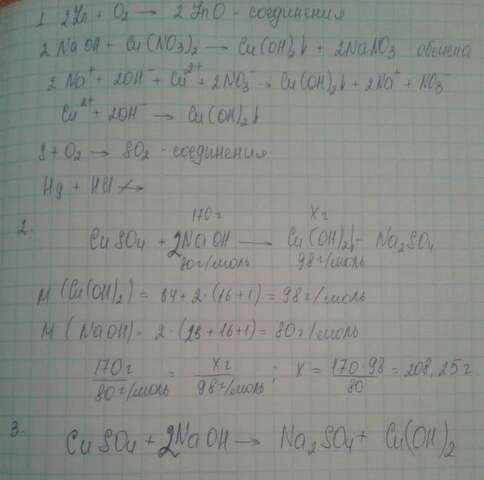 1. 2Zn + O₂ → 2ZnO - соединения
2NaOH + Cu(NO₃)₂ → Cu(OH)₂↓ + 2NaNO₃ обмена
2Na⁺ + 2OH⁻ + Cu²⁺ + 2NO₃⁻ → Cu(OH)₂↓ + 2Na⁺ + NO₃⁻
Cu²⁺ + 2OH⁻ → Cu(OH)₂↓
S + O₂ → SO₂ - соединения
Hg + HCl ↛
2.
170 г х г
CuSO₄ + 2NaOH → Cu(OH)₂↓ + Na₂SO₄
80 г/моль 98 г/моль
M (Cu(OH)₂) = 64 + 2·(16+1) = 98 г/моль
M (NaOH) = 2·(23+16+1) = 80 г/моль
170 г / 80 г/моль = х г / 98 г/моль ; х = 170·98 / 80 = 208,25 г
3. CuSO₄ + 2NaOH → Na₂SO₄ + Cu(OH)₂